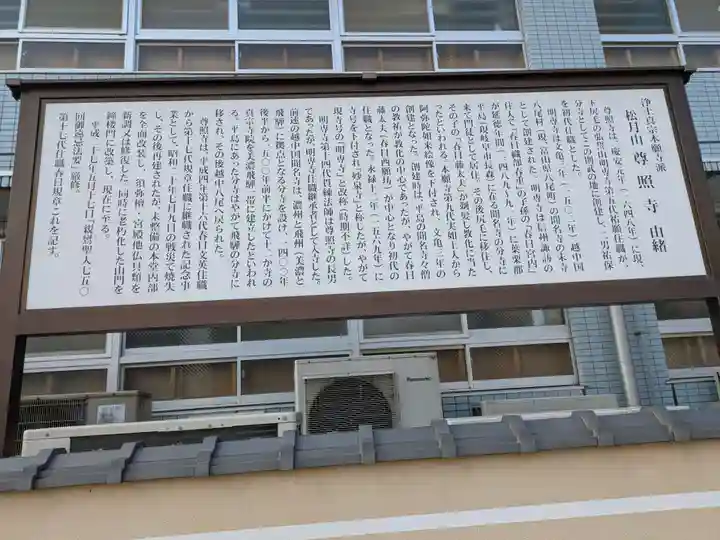 浄土真宗本願寺派
松月山 尊照寺 由緒
尊照寺は、慶安元年(一六四八年)に現、
下呂毛の張留山明専寺第五代祐願住職が、
分寺としてこの則武の地に創建し、二男祐保
を初代住職とした。
明専寺は文亀二年(一五〇二年)越中国
八尾村(現、富山県八尾町)の聞名寺の末寺
として創建された。明専寺は信州諏訪の
住人で「春日職部春住」の子孫の「春日宮内」
が延徳年間(一四八九〜九年)に安楽郡
平島(現岐阜市長森)に在る聞名寺の分寺に
来て門徒として居住、その後尻毛に移住し、
その子の「春日藤太夫」が剃髪し教化に当た
ったといわれる。本願寺第九代実如上人から
阿弥陀如来絵像を下付され、文亀二年の
創建となった。創建時は、平島の聞名寺々僧
の教祐が教化の中心であったが、やがて春日
藤太夫(春日西願坊)が中心となり初代の
住職となった。永禄十二年(一五六九年)に
寺号を下付され「妙泉寺」と称したが、やがて
現寺号の「明専寺」と改称(時期不詳)した。
明専寺第十四代賞練法師は尊照寺の長男
であったが明専寺住職継承者として入寺した。
前述の越中国聞名寺は、濃州と飛州(美濃と
飛騨)に拠点となる分寺を設け、一四〇〇年
後半から一五〇〇年前半にかけて十二か寺の
真宗寺院を美濃飛騨一帯に建立したといわれ
る。平島にあった分寺はやがて飛騨の分寺に
移され、その後越中八尾へ戻られた。
尊照寺は、平成四年第十六代春日文英住職
から第十七代現章住職に継職された記念事
業として、昭和二十年七月九日の戦災で焼失
し、その後再建されたが、未整備の本堂内部
を全面改装し、須弥壇・宮殿他仏具類を
新調又は修復した。同時に老朽化した山門を
鐘楼門に改築し、現在に至る。
平成二十七年五月十七日「親鸞聖人七五〇
回御遠忌法要」厳修。
第十七代住職春日規章これを記す。
Panasonic